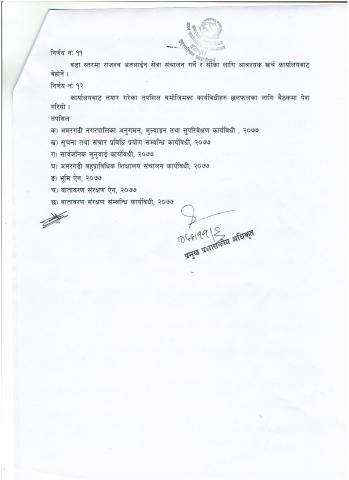 निर्णय नं ११
वडा स्तरमा राजश्व अनलाईन सेवा संचालन गर्ने र सोका लागि आवश्यक खर्च कार्यालयबाट
बेहोर्ने ।
निर्णय नं १२
कार्यालयबाट तयार गरेका तपसिल बमोजिमका कार्यविधीहरु छलफलका लागि बैठकमा पेश
गरियो ।
तपसिल
क) अमरगढी नगरपालिका अनुगमन, मुल्याङ्कन तथा सुपरिवेक्षण कार्यविधी , २०७७
ख) सुचना तथा संचार प्रविधि प्रयोग सम्बन्धि कार्यविधी, २०७७
ग) सार्वजनिक सुनुवाई कार्यविधी, २०७७
घ) अमरगढी बहुप्राविधिक शिक्षालय संचालन कार्यविधी, २०७७
ङ) भूमि ऐन, २०७७
च) वातावरण संरक्षण ऐन, २०७७
छ) वातावरण संरक्षण सम्बन्धि कार्यविधी, २०७७
प्रमुख प्रशासकीय अधिकृत